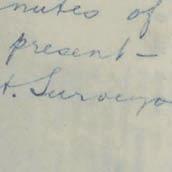 nutes of
present -
t. Surveyo